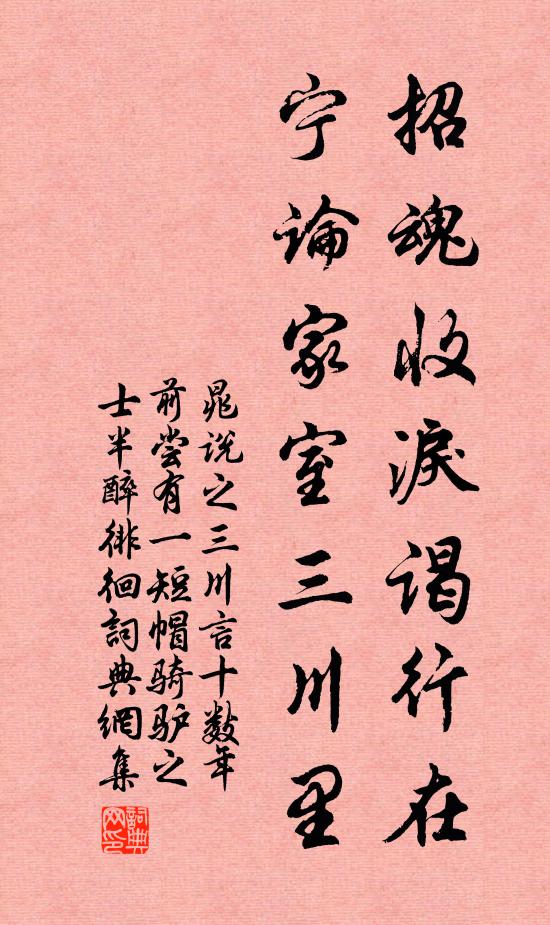 招魂收淚谒行在
宁论家室三川里
晁说之三川言十数年
前尝有一短帽骑驴之
士半醉徘徊詞典網集
詞典
网印